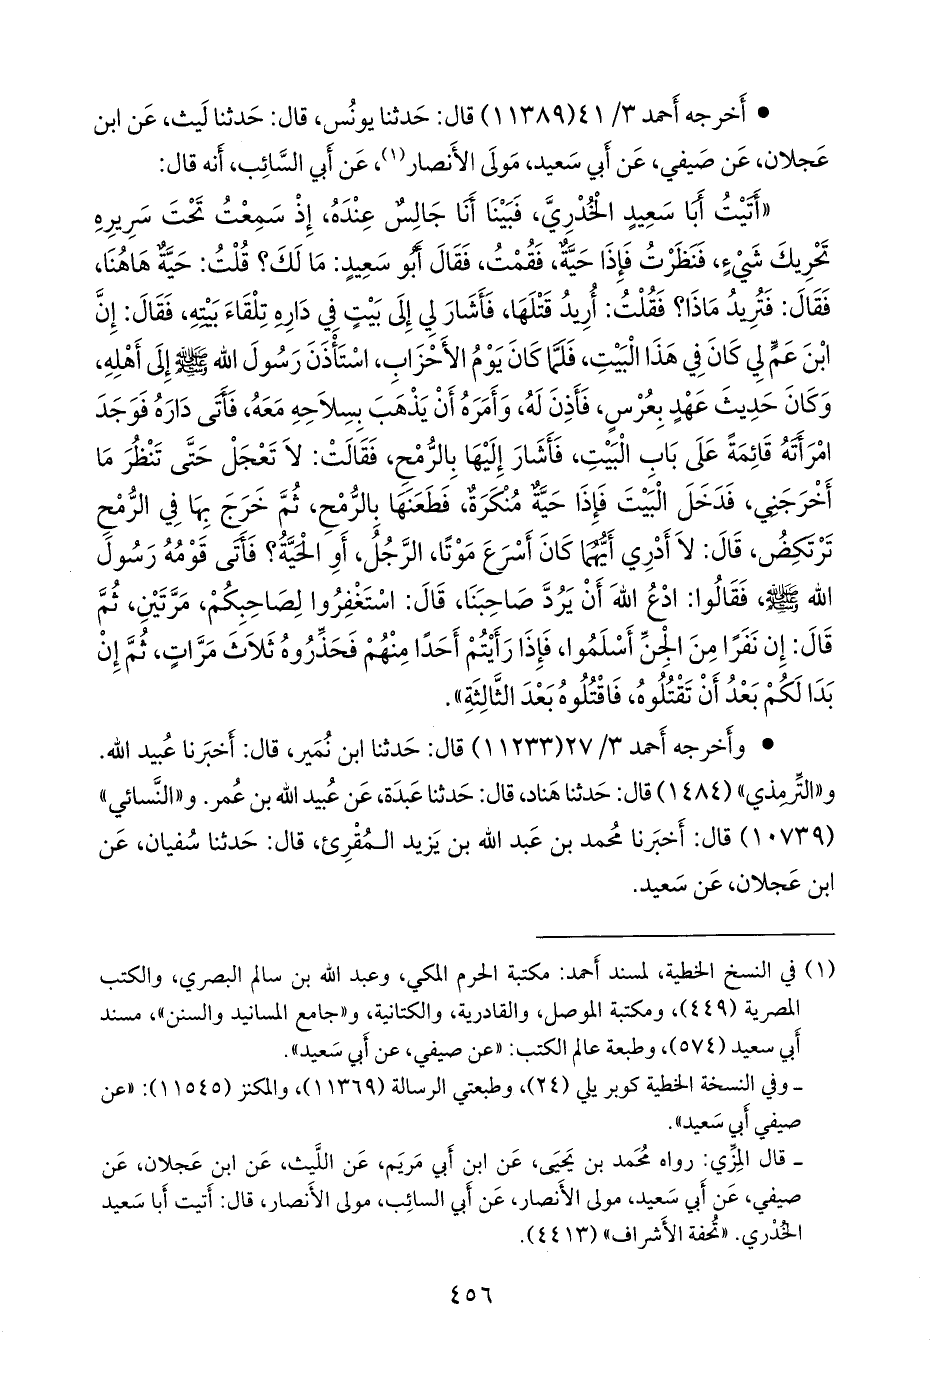 • أَخرجه أَحمد ٣/ ٤١(١١٣٨٩) قال: حَدثنا يونُس، قال: حَدثنا لَيث، عَن ابن
عَجلان، عَن صَيفي، عَن أَبي سَعيد، مَولَى الأَنصار(١)، عَن أَبي السَّائِب، أَنه قال:
«أَتَيْتُ أَبَا سَعِيدٍ الْخُدْرِيَّ، فَبَيْنَا أَنَا جَالِسٌ عِنْدَهُ، إِذْ سَمِعْتُ تَحْتَ سَرِيرِهِ
تَحْرِيكَ شَيْءٍ، فَنَظَرْتُ فَإِذَا حَيَّةٌ، فَقُمْتُ، فَقَالَ أَبُو سَعِيدٍ: مَا لَكَ؟ قُلْتُ: حَيَّةٌ هَاهُنَا،
فَقَالَ: فَتُرِيدُ مَاذَا؟ فَقُلْتُ: أُرِيدُ قَتْلَهَا، فَأَشَارَ لِي إِلَى بَيْتٍ فِي دَارِهِ تِلْقَاءَ بَيْتِهِ، فَقَالَ: إِنَّ
ابْنَ عَمٍّ لِي كَانَ فِي هَذَا الْبَيْتِ، فَلَمَّا كَانَ يَوْمُ الأَحْزَابِ، اسْتَأْذَنَ رَسُولَ الله ﷺ إِلَى أَهْلِهِ،
وَكَانَ حَدِيثَ عَهْدٍ بِعُرْسٍ، فَأَذِنَ لَهُ، وَأَمَرَهُ أَنْ يَذْهَبَ بِسِلَاحِهِ مَعَهُ، فَأَتَى دَارَهُ فَوَجَدَ
امْرَأَتَهُ قَائِمَةً عَلَى بَابِ الْبَيْتِ، فَأَشَارَ إِلَيْهَا بِالرُّمْحِ، فَقَالَتْ: لَا تَعْجَلْ حَتَّى تَنْظُرَ مَا
أَخْرَجَنِي، فَدَخَلَ الْبَيْتَ فَإِذَا حَيَّةٌ مُنْكَرَةٌ، فَطَعَنَهَا بِالرُّمْحِ، ثُمَّ خَرَجَ بِهَا فِي الرُّمْحِ
تَرْتَكِضُ، قَالَ: لَا أَدْرِي أَيُّهُمَا كَانَ أَسْرَعَ مَوْتًا، الرَّجُلُ، أَوِ الْحَيَّةُ؟ فَأَتَى قَوْمُهُ رَسُولَ
الله ﷺ، فَقَالُوا: ادْعُ اللهَ أَنْ يَرُدَّ صَاحِبَنَا، قَالَ: اسْتَغْفِرُوا لِصَاحِبِكُمْ، مَرَّتَيْنِ، ثُمَّ
قَالَ: إِن نَفَرًا مِنَ الْجِنِّ أَسْلَمُوا، فَإِذَا رَأَيْتُمْ أَحَدًا مِنْهُمْ فَحَذِّرُوهُ ثَلَاثَ مَرَّاتٍ، ثُمَّ إِنْ
بَدَا لَكُمْ بَعْدُ أَنْ تَقْتُلُوهُ، فَاقْتُلُوهُ بَعْدَ الثَّالِثَةِ».
• وأَخرجه أَحمد ٣/ ٢٧(١١٢٣٣) قال: حَدثنا ابن نُمَير، قال: أَخبَرنا عُبيد الله.
و«التِّرمِذي» (١٤٨٤) قال: حَدثنا هَناد، قال: حَدثنا عَبدَة، عَن عُبيد الله بن عُمر. و«النَّسائي»
(١٠٧٣٩) قال: أَخبَرنا مُحمد بن عَبد الله بن يَزيد المُقْرِئ، قال: حَدثنا سُفيان، عَن
ابن عَجلان، عَن سَعيد.
(١) في النسخ الخطية، لمسند أَحمد: مكتبة الحرم المكي، وعبد الله بن سالم البصري، والكتب
المصرية (٤٤٩)، ومكتبة الموصل، والقادرية، والكتانية، و«جامع المسانيد والسنن»، مسند
أَبي سعيد (٥٧٤)، وطبعة عالم الكتب: «عن صيفي، عن أَبي سَعيد».
ـ وفي النسخة الخطية كوبر يلي (٢٤)، وطبعتي الرسالة (١١٣٦٩)، والمكنز (١١٥٤٥): «عن
صيفي أَبي سَعيد».
ـ قال المِزِّي: رواه مُحَمد بن يَحيَى، عَن ابن أَبي مريَم، عَن اللَّيث، عَن ابن عَجلان، عَن
صيفي، عَن أَبي سَعيد، مولى الأَنصار، عَن أَبي السائِب، مولى الأَنصار، قال: أَتيت أَبا سَعيد
الخُدْري. «تُحفة الأَشراف» (٤٤١٣).
٤٥٦